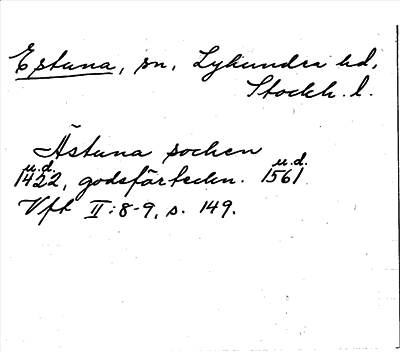 Estuna, sn, Lyhundra hd,
Stockh. l.
Ästuna socken
u.d. u.d.
1422, godsförteckn. 1561
Vfb II:8-9, s. 149.